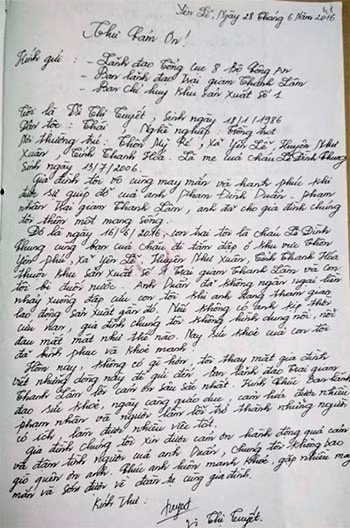 Yên Lễ, Ngày 28 Tháng 6 Năm 2016
Thư Cảm Ơn!
Kính gửi: - Lãnh đạo Tổng Cục 8 Bộ Công An
- Ban lãnh đạo Trại giam Thanh Lâm
- Ban chỉ huy khu sản xuất số 1.
Tôi là Vi Thị Tuyết, Sinh ngày 18/1/1986
Dân tộc: Thái, Nghề nghiệp: Trồng trọt
Nơi thường trú: Thôn Mỹ Ré, Xã Yên Lễ, Huyện Như
Xuân Tỉnh Thanh Hóa. Là mẹ của cháu Lê Đình Phung
Sinh ngày 13/7/2006.
Gia đình tôi vô cùng may mắn và hạnh phúc khi
được sự giúp đỡ của anh Phạm Đình Duân - phạm
nhân Trại giam Thanh Lâm, anh đã cho gia đình chúng
tôi thêm một mạng sống.
Đó là ngày 16/6/2016, con trai tôi là cháu Lê Đình
Phung cùng bạn của cháu đi tắm đập ở khu vực Thôn
Yên Phú, xã Yên Lễ, Huyện Như Xuân, Tỉnh Thanh Hóa
thuộc khu sản xuất số 1 Trại giam Thanh Lâm và con
tôi bị đuối nước. Anh Duân đã không ngần ngại liền
nhảy xuống đập cứu con tôi khi anh đang tham gia
lao động sản xuất gần đó. Nếu không có anh kịp thời
cứu nạn, gia đình chúng tôi không hình dung nổi, nỗi
đau mất mát như thế nào. Nay sức khoẻ của con tôi
đã bình phục và khoẻ mạnh.
Hôm nay, không có gì hơn, tôi thay mặt gia đình
viết những dòng này để gửi đến ban lãnh đạo Trại giam
Thanh Lâm lời cảm ơn sâu sắc nhất. Kính Chúc Ban lãnh
đạo sức khoẻ, ngày càng giáo dục cảm hóa được nhiều
phạm nhân và người lầm lỗi trở thành những người
có ích, làm được nhiều việc tốt.
Gia đình chúng tôi xin được cảm ơn hành động quả cảm
và đậm tình người của anh Duân, chúng tôi không bao
giờ quên ơn anh. Chúc anh luôn mạnh khoẻ, gặp nhiều may
mắn và sớm được về đoàn tụ cùng gia đình.
Kính Thư:
Tuyết
Vi Thị Tuyết.